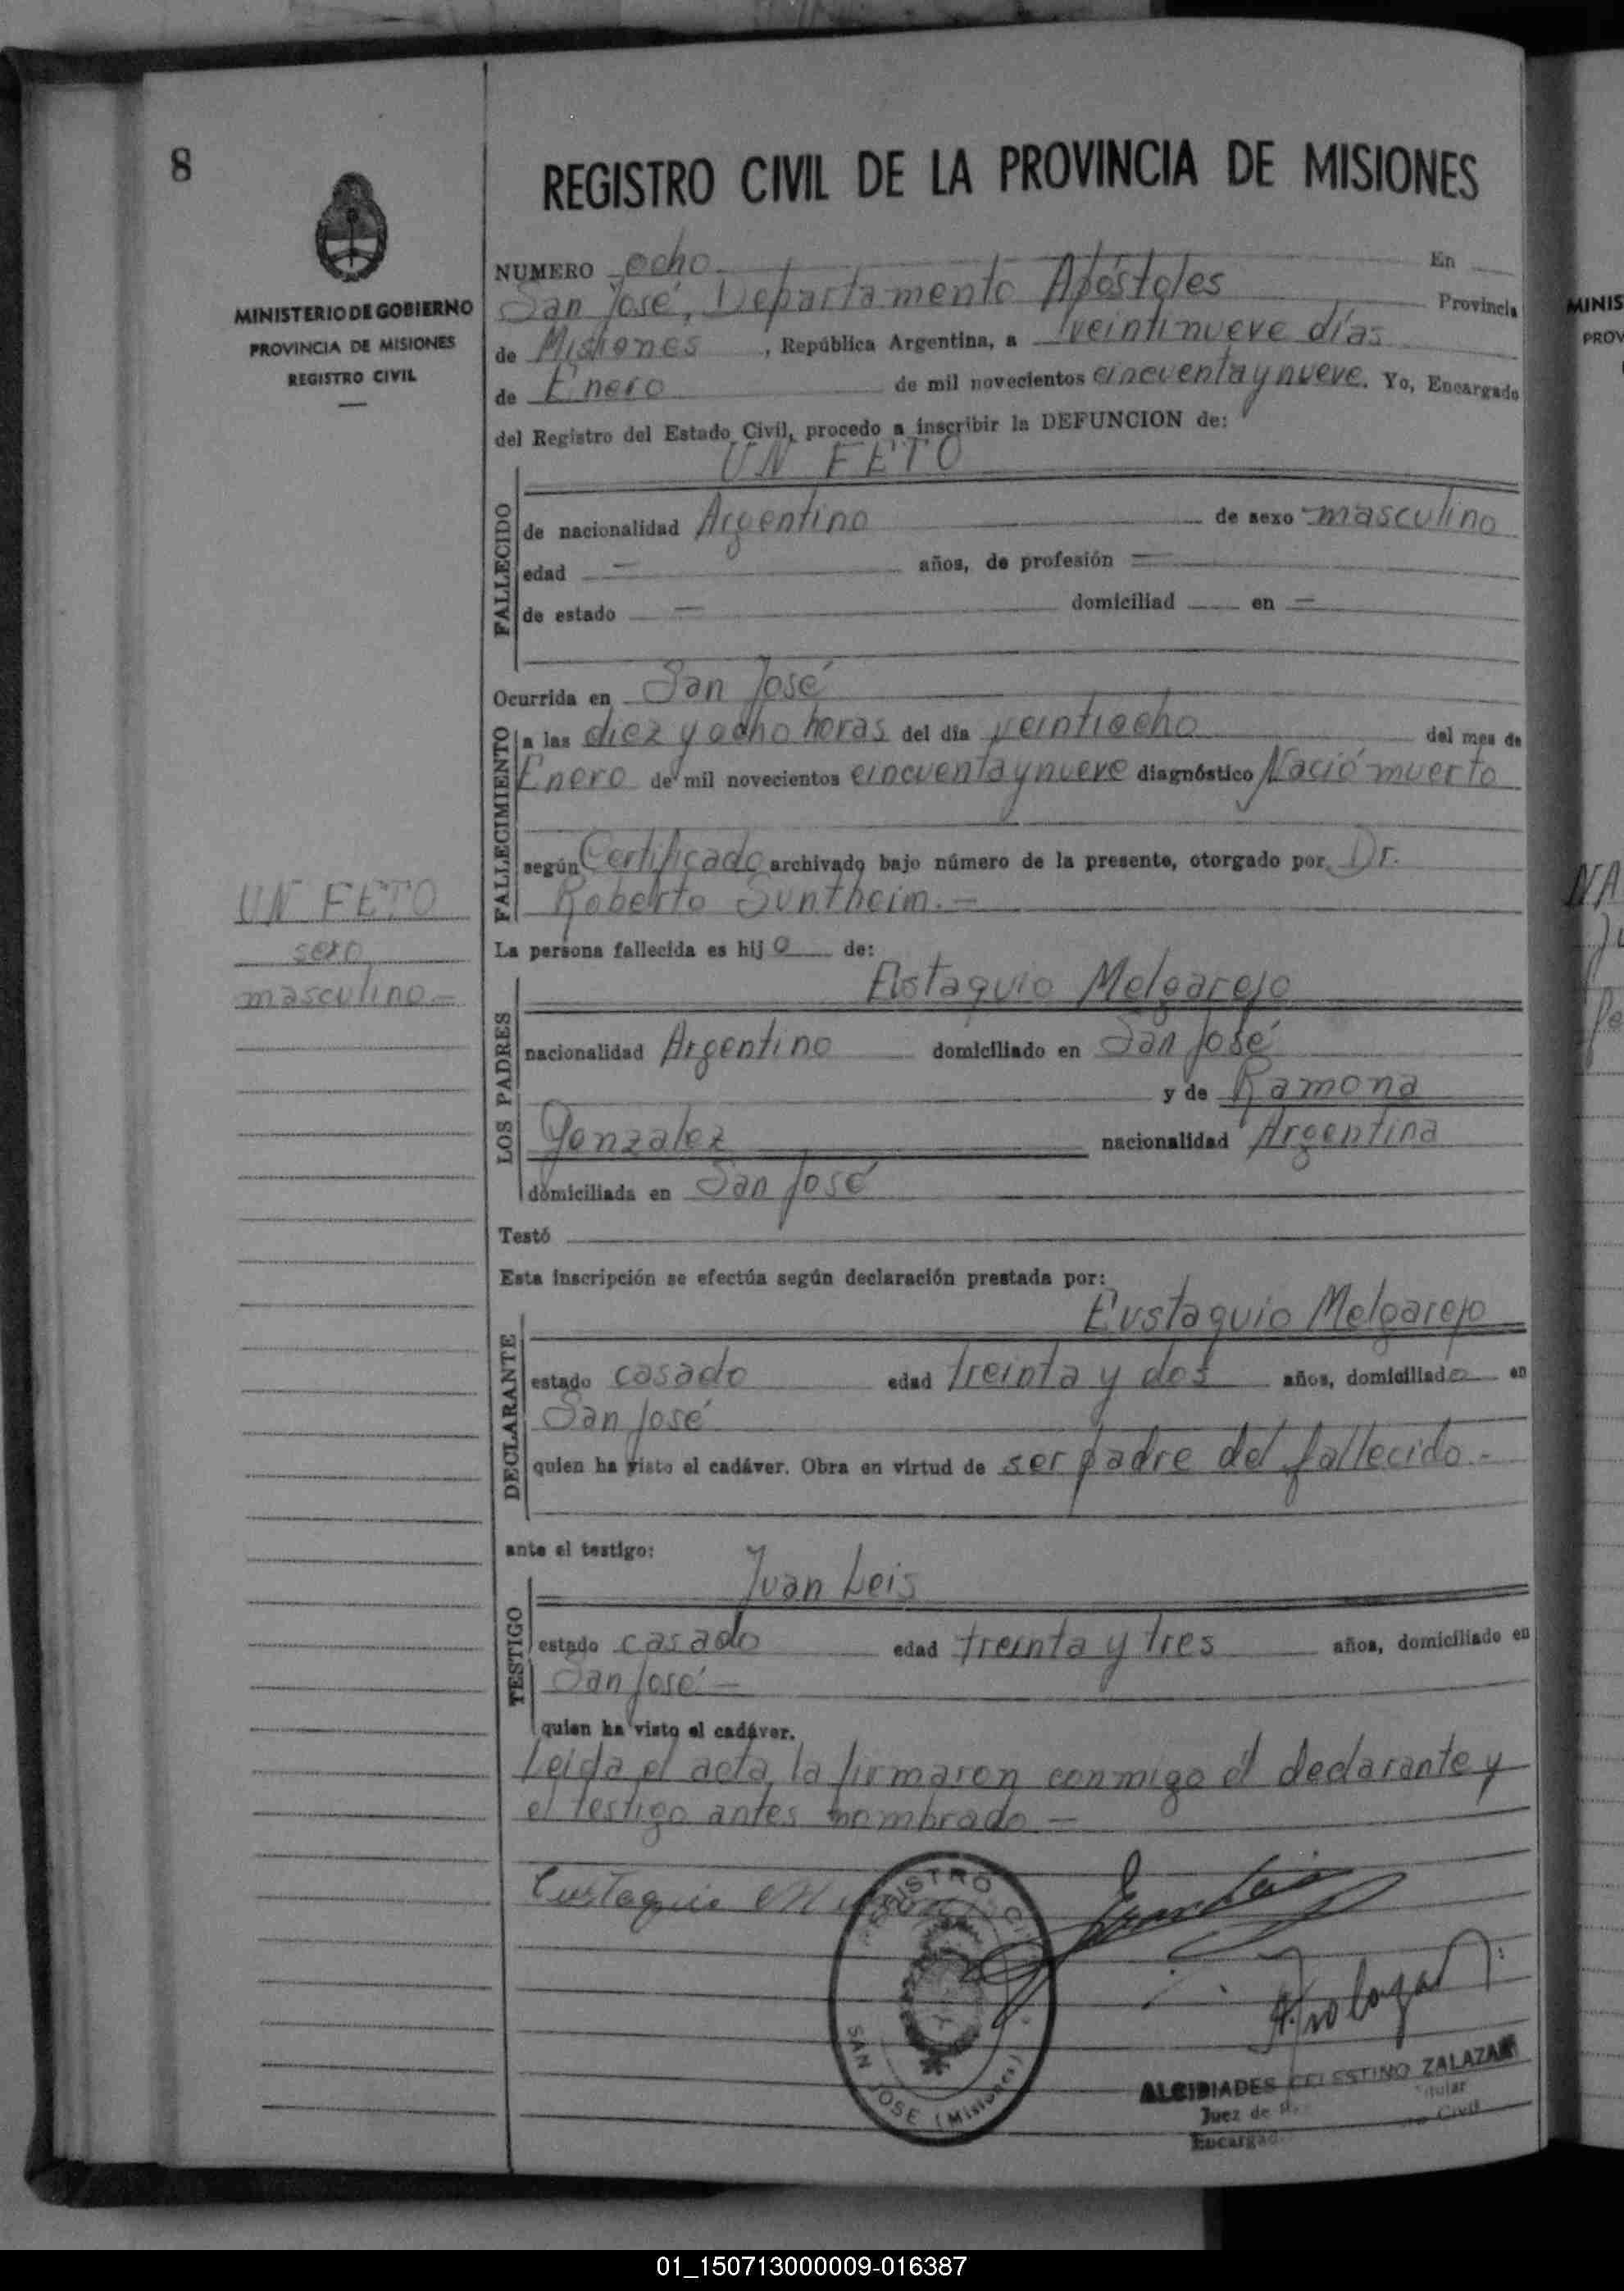 8
MINISTERIO DE GOBIERNO
PROVINCIA DE MISIONES
REGISTRO CIVIL
UN FETO
sexo
masculino —
REGISTRO CIVIL DE LA PROVINCIA DE MISIONES
NUMERO ocho En
San José, Departamento Apóstoles Provincia
de Misiones, República Argentina, a veintinueve días
de Enero de mil novecientos cincuenta y nueve. Yo, Encargado
del Registro del Estado Civil, procedo a inscribir la DEFUNCION de:
UN FETO
FALLECIDO
de nacionalidad Argentino de sexo masculino
edad — años, de profesión —
de estado — domiciliad en —
Ocurrida en San José
FALLECIMIENTO
a las diez y ocho horas del día veintiocho del mes de
Enero de mil novecientos cincuenta y nueve diagnóstico Nació muerto
según Certificado archivado bajo número de la presente, otorgado por Dr.
Roberto Suntheim. —
La persona fallecida es hijo de:
LOS PADRES
Estaquio Melgarejo
nacionalidad Argentino domiciliado en San José
y de Ramona
Gonzalez nacionalidad Argentina
domiciliada en San José
Testó
Esta inscripción se efectúa según declaración prestada por:
Eustaquio Melgarejo
DECLARANTE
estado casado edad treinta y dos años, domiciliado en
San José
quien ha visto el cadáver. Obra en virtud de ser padre del fallecido. -
ante el testigo:
Juan Leis
TESTIGO
estado casado edad treinta y tres años, domiciliado en
San José —
quien ha visto el cadáver.
Leída el acta, la firmaron conmigo el declarante y
el testigo antes nombrado —
Eustaquio
REGISTRO CIVIL
SAN JOSE (Misiones)
ALCIBIADES CELESTINO ZALAZAR
Juez de Titular
Encargad Civil
MINIS
PROV
NA
01_150713000009-016387